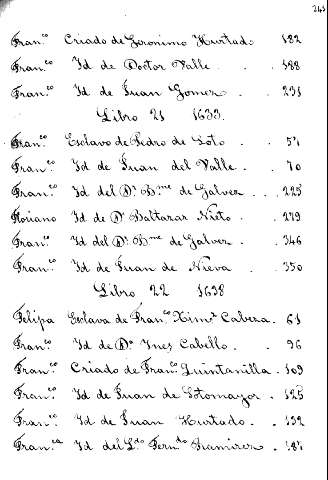 243
Fran.co Criado de Geronimo Hurtado 182
Fran.co Id de Doctor Valle . . 188
Fran.co Id de Juan Gomez . . 231
Libro 21 1633.
Fran.co Esclavo de Pedro de Soto . . 51
Fran.co Id de Juan del Valle . . 70
Fran.co Id del D.r B.me de Galvez . . . 225
Floriano Id de D.n Baltazar Nieto . . 279
Fran.co Id del D.r B.me de Galvez . . 346
Fran.co Id de Juan de Nieva . 350
Libro 22 1638
Felipa Esclava de Fran.co Xim.z Cabeza . 61
Fran.co Id de D.a Ines Cabello . . 96
Fran.co Criado de Fran.co Quintanilla . 109
Fran.co Id de Juan de Sotomayor . 125
Fran.co Id de Juan Hurtado . . 132
Fran.ca Id del L.do Fern.do Ramirez .